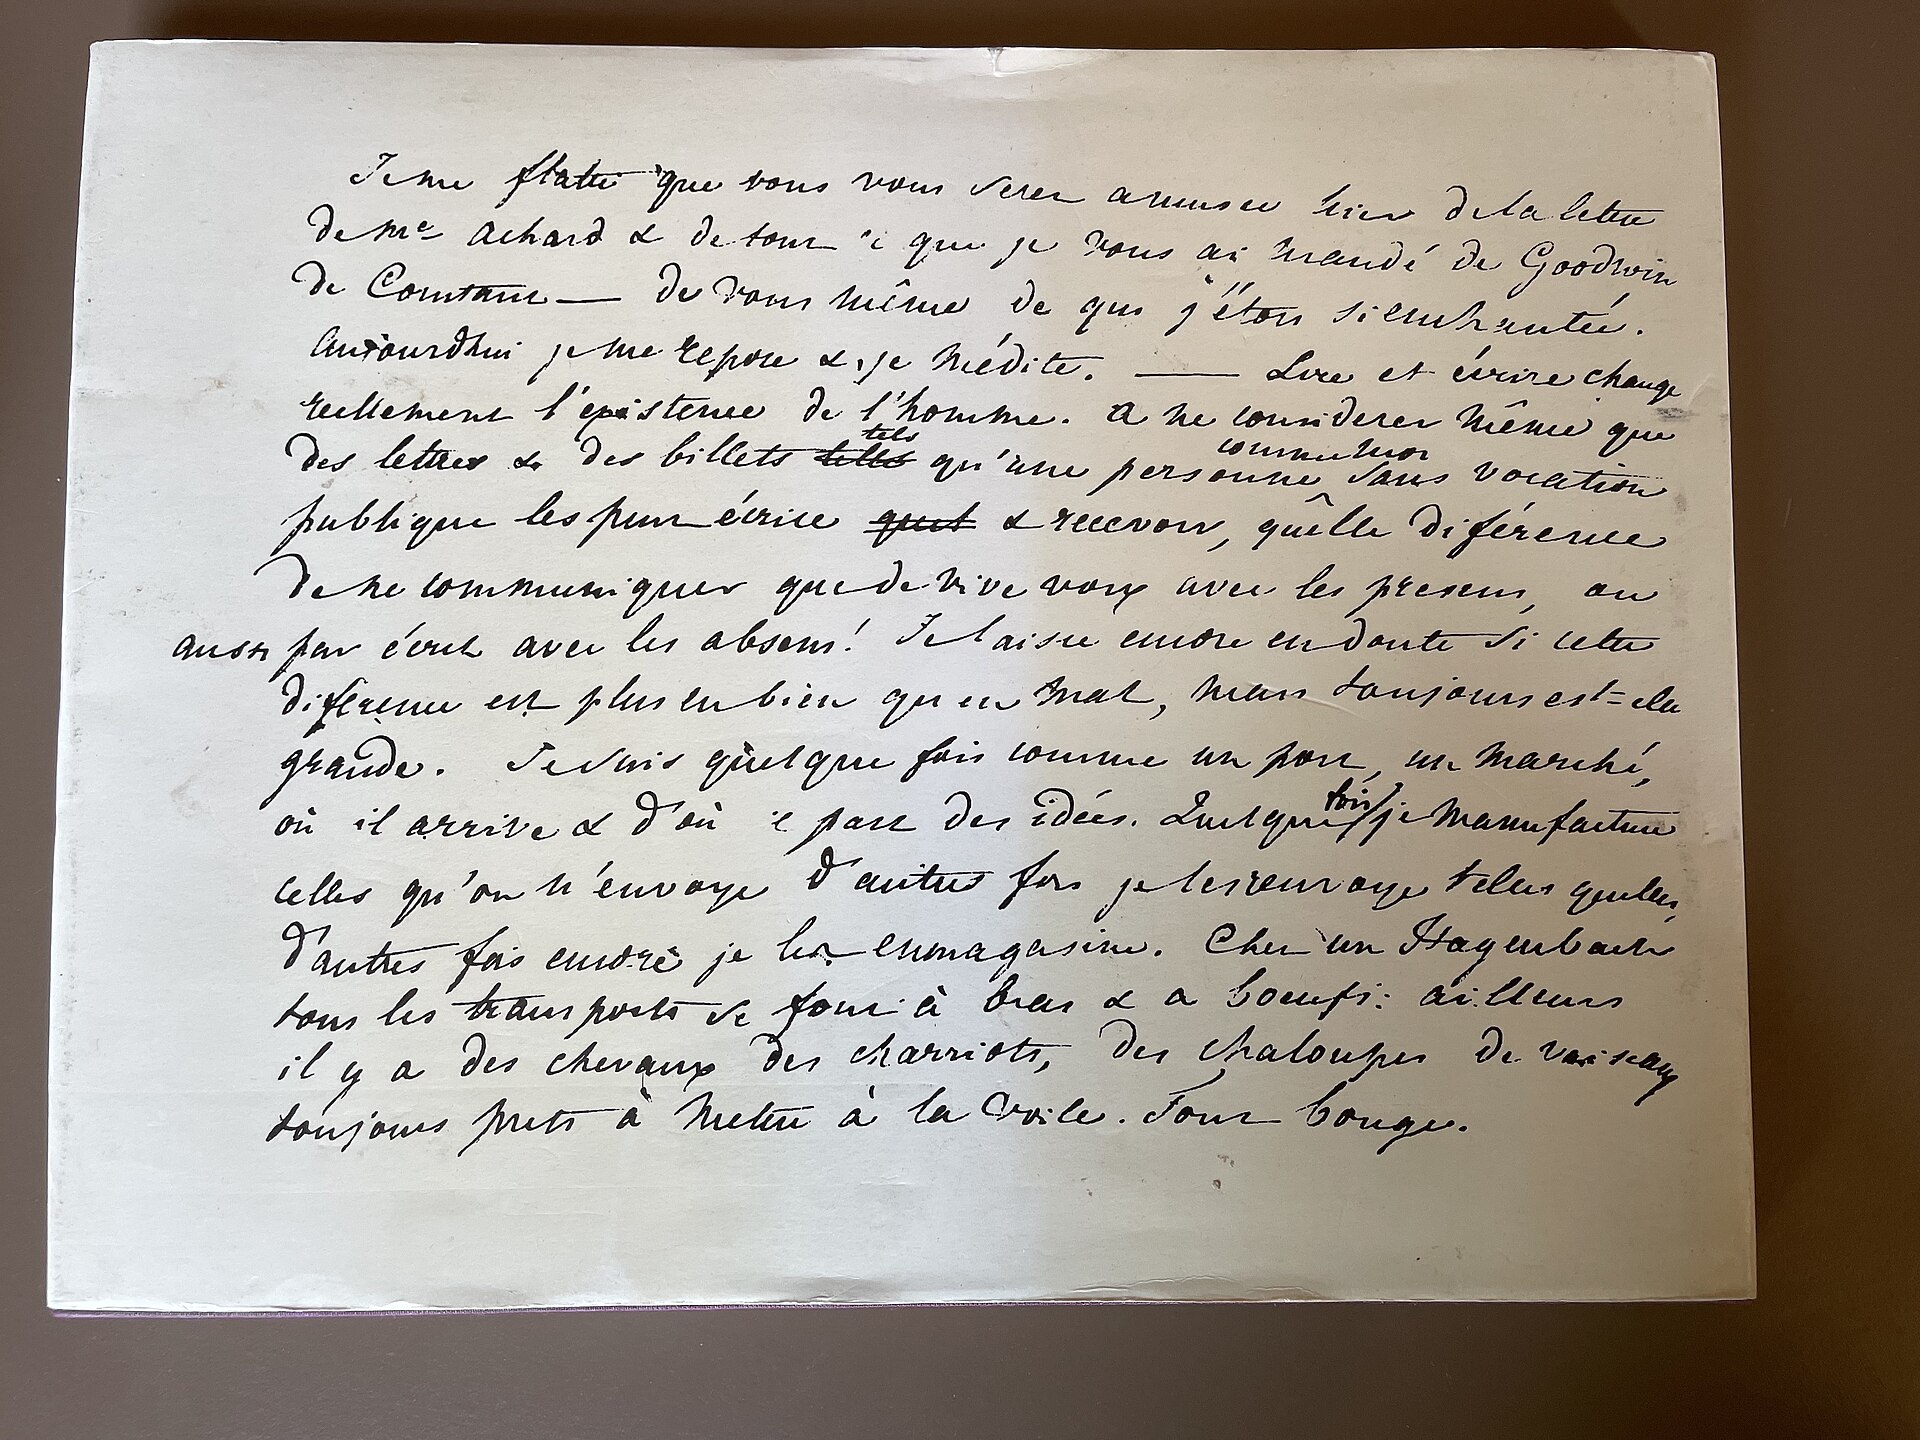 Je me flatte que vous vous serez amusée hier de la lettre
de Me Achard & de tout ce que je vous ai mandé de Goodwin
de Constant — de vous même de qui j'étois si enchantée.
Aujourdhui je me repose & je médite. — Lire et écrire change
reellement l'existence de l'homme. A ne considerer même que
des lettres & des billets tells tels qu'une personne commune & sans vocation
publique les peut écrire quet & recevoir, quelle diférence
de ne communiquer que de vive voix avec les presens, ou
aussi par écrit avec les absens! Je laisse encore en doute si cette
diference est plus en bien qu en mal, mais toujours est-elle
grande. Je suis quelque fois comme un port, un marché,
où il arrive & d'où il part des idées. Quelque fois je manufacture
celles qu'on m'envoye d'autres fois je les renvoye telles quelles,
d'autres fois encore je les enmagasine. Chez un Hagenbach
tous les transports se font à bras & a boeufs: ailleurs
il y a des chevaux des charriots, des chaloupes de vaisseaux
toujours prets à mettre à la voile. Tout bouge.